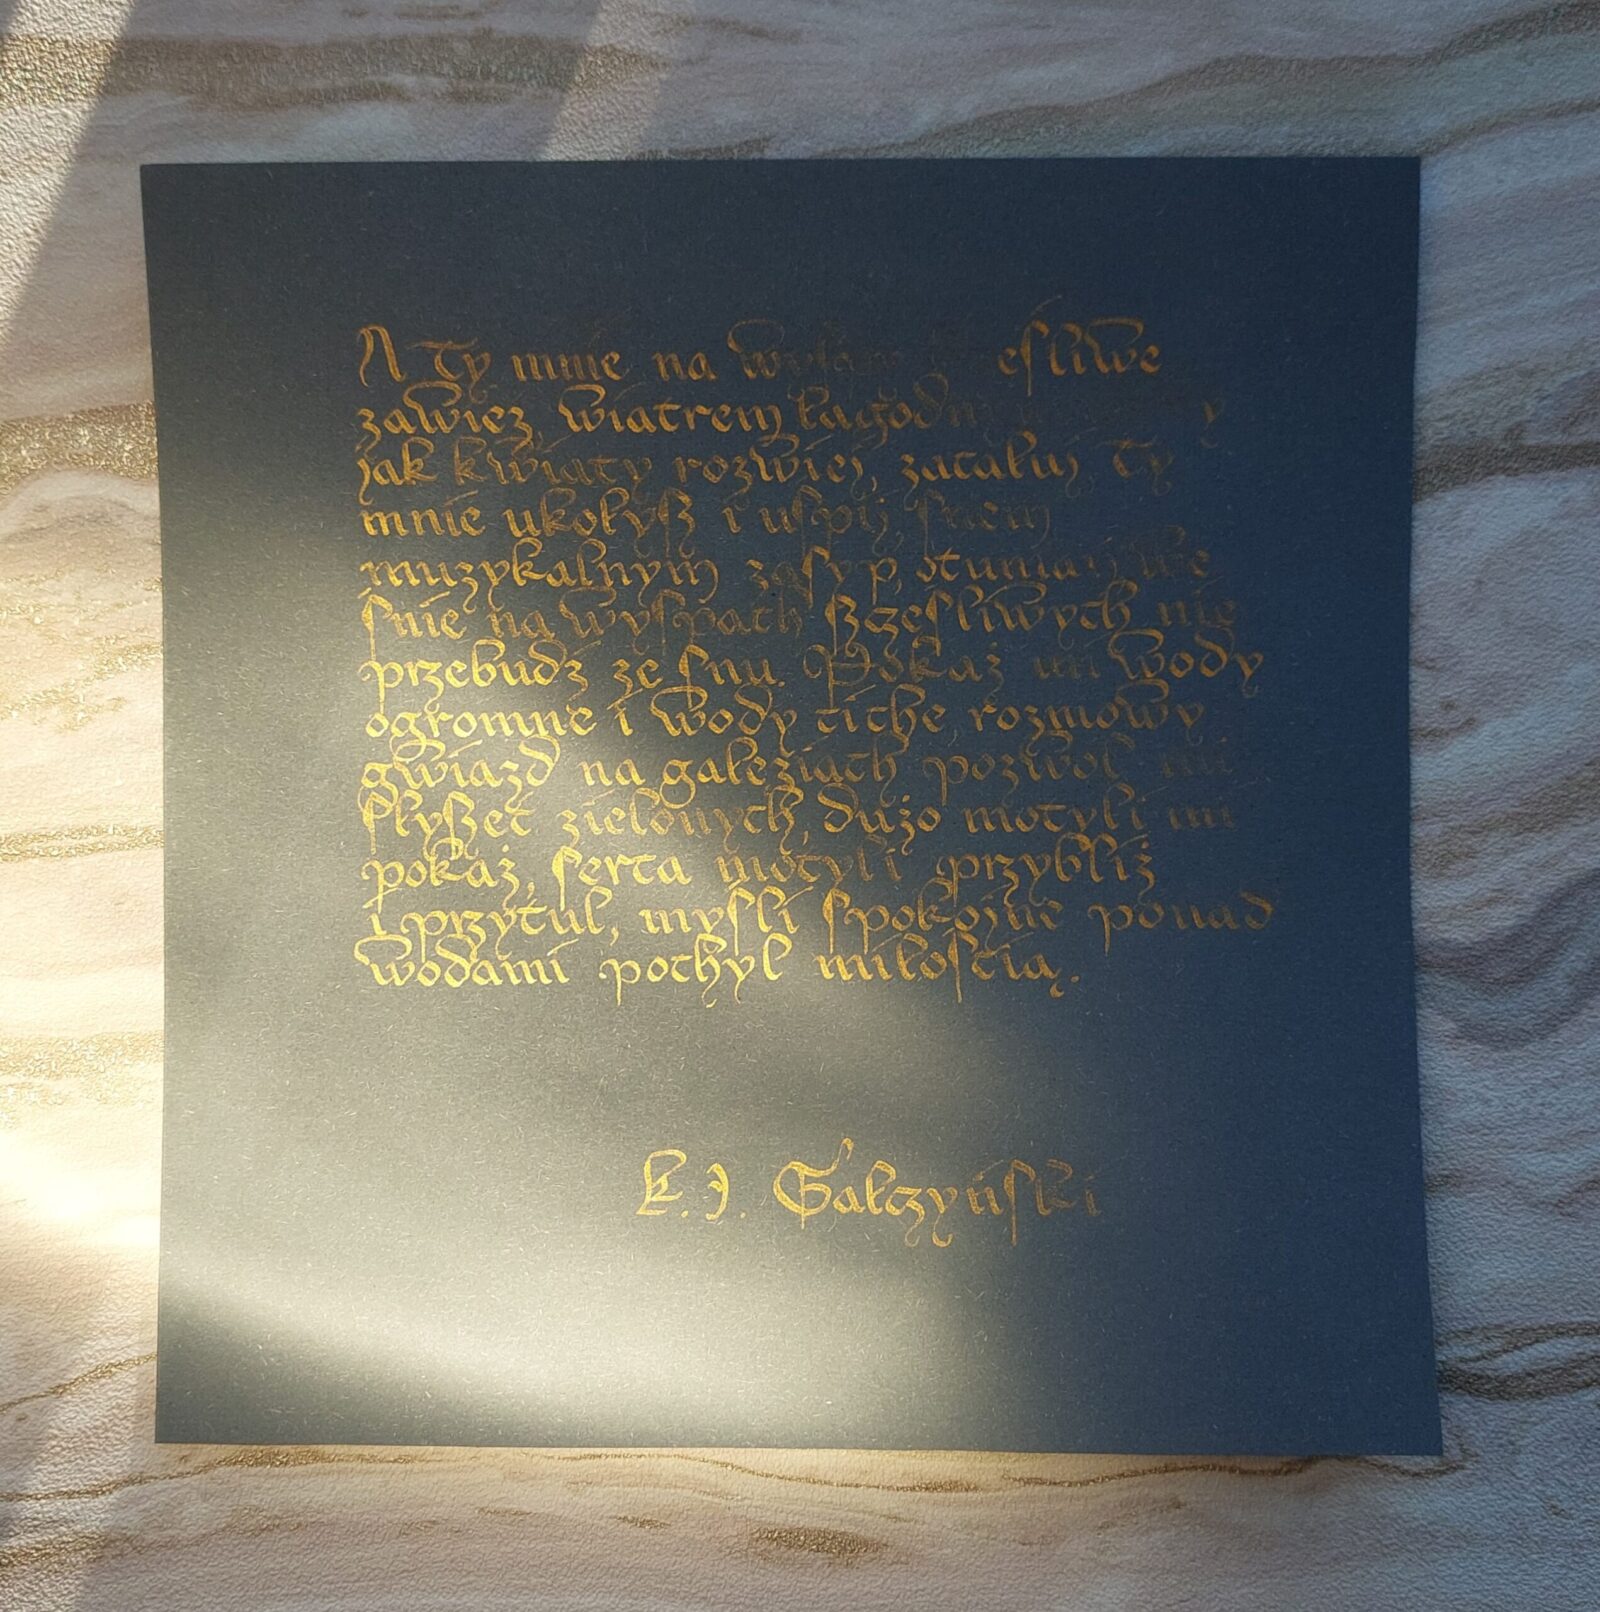 A Ty mnie na wyspy szczęśliwe
zawieź, wiatrem łagodnym włosy
jak kwiaty rozwiej, zacałuj, Ty
mnie ukołysz i uśpij, snem
muzykalnym zasyp, otumań, we
śnie na wyspach szczęśliwych nie
przebudź ze snu. Pokaż mi wody
ogromne i wody ciche, rozmowy
gwiazd na gałęziach pozwól mi
słyszeć zielonych, dużo motyli mi
pokaż, serca motyli przybliż
i przytul, myśli spokojne ponad
wodami pochyl miłością.
K. I. Gałczyński